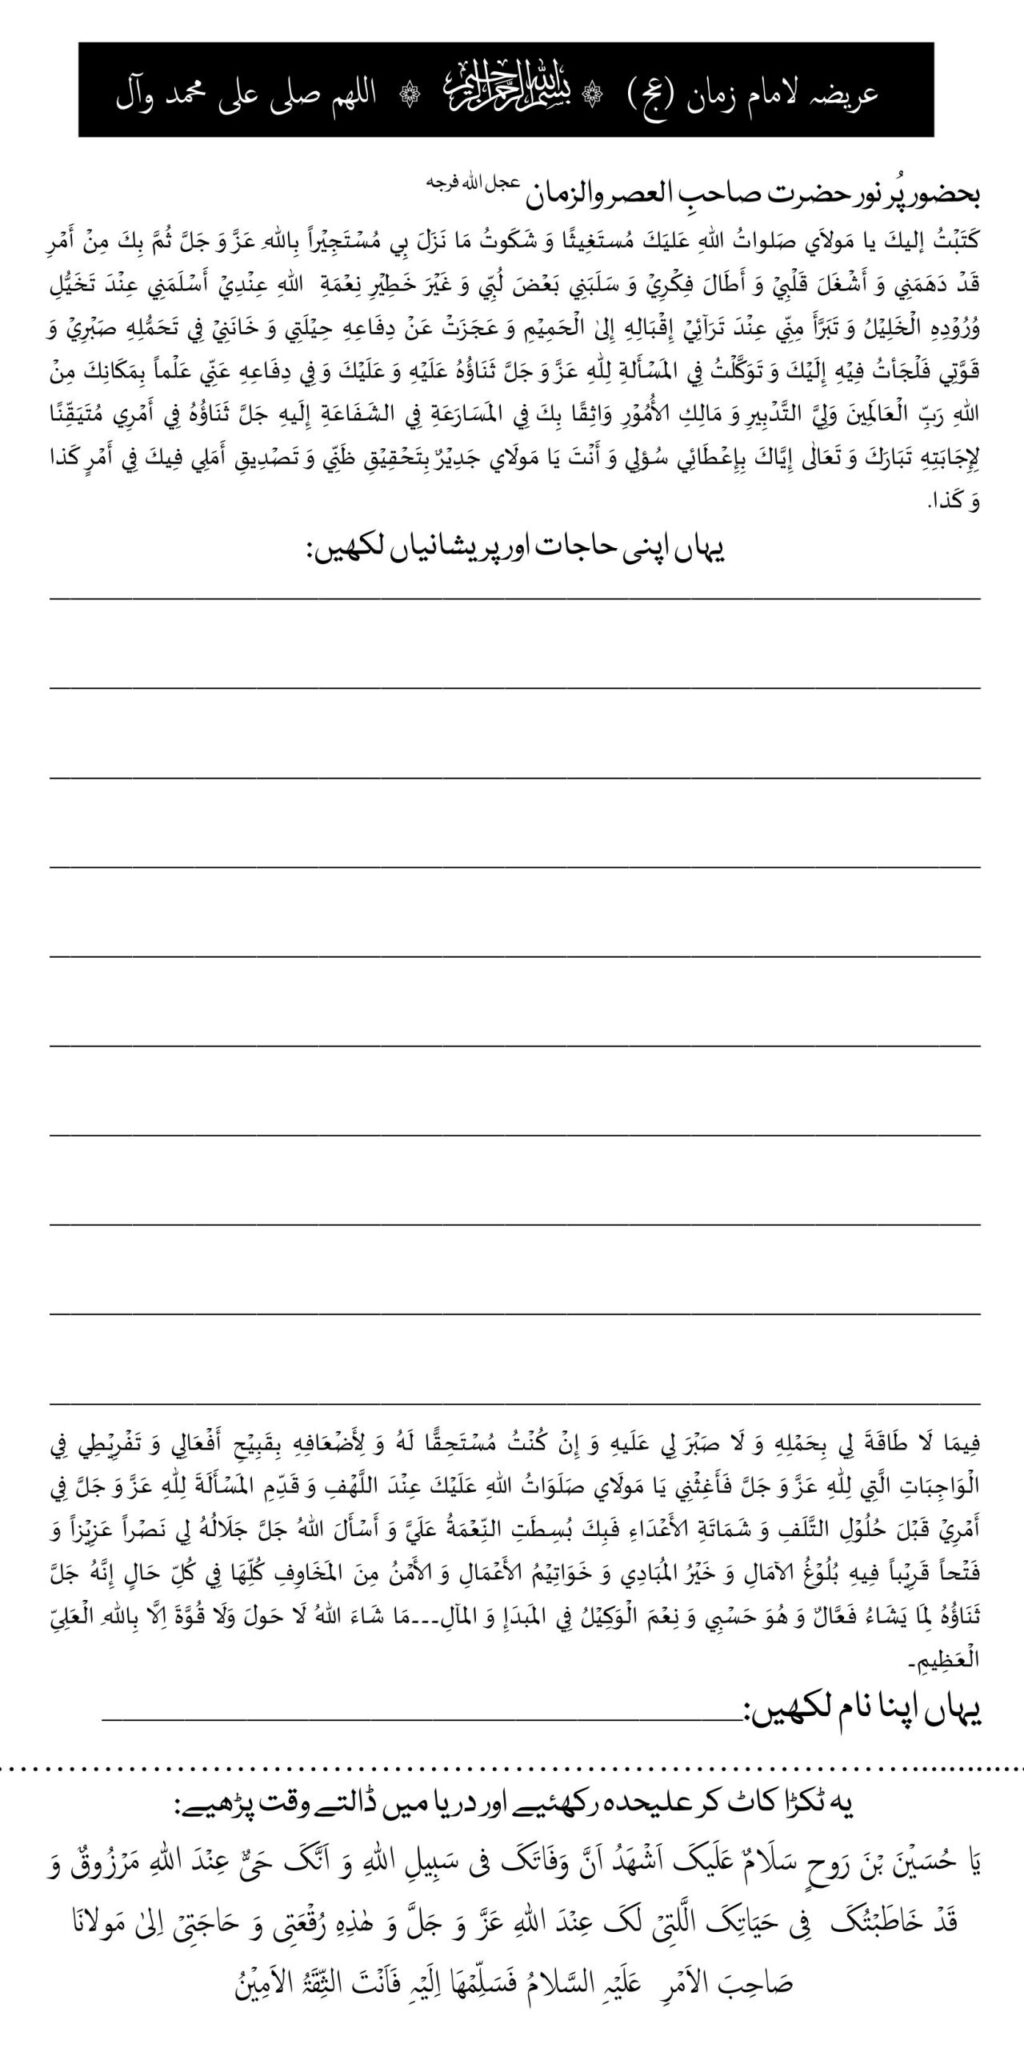 عریضہ لامام زمان (عج) ۞ بسم الله الرحمن الرحيم ۞ اللهم صلی علی محمد وآل
بحضور پُر نور حضرت صاحبِ العصر والزمان عجل الله فرجه
كَتَبْتُ إليكَ يا مَولاَي صَلواتُ اللهِ عَليَكَ مُستَغِيثًا وَ شَكَوتُ مَا نَزَلَ بِي مُسْتَجِيْراً بِاللهِ عَزَّ وَ جَلَّ ثُمَّ بِكَ مِنْ أَمْرِ
قَدْ دَهَمَنِي وَ أَشْغَلَ قَلْبِيْ وَ أَطَالَ فِكْرِيْ وَ سَلَبَنِي بَعْضَ لُبِّي وَ غَيْرَ خَطِيْرِ نِعْمَةِ اللهِ عِنْدِيْ أَسْلَمَنِي عِنْدَ تَخَيُّلِ
وُرُوْدِهِ الْخَلِيْلُ وَ تَبَرَّأَ مِنِّي عِنْدَ تَرَآئِيْ إِقْبَالِهِ إِلىٰ الْحَمِيْمِ وَ عَجَزَتْ عَنْ دِفَاعِهِ حِيْلَتِي وَ خَانَنِيْ فِي تَحَمُّلِهِ صَبْرِيْ وَ
قَوَّتِي فَلْجَأتُ فِيْهِ إِلَيْكَ وَ تَوَكَّلْتُ فِي المَسْأَلةِ لِلّٰهِ عَزَّ وَ جَلَّ ثَنَاؤُهُ عَلَيْهِ وَ عَلَيْكَ وَ فِي دِفَاعِهِ عَنِّي عَلْماً بِمَكَانِكَ مِنْ
اللهِ رَبِّ الْعَالَمِينَ وَلِيَّ التَّدْبِيرِ وَ مَالِكِ الأُمُوْرِ وَاثِقًا بِكَ فِي المَسَارَعَةِ فِي الشَفَاعَةِ إِلَيهِ جَلَّ ثَنَاؤُهُ فِي أَمْرِي مُتَيَقِّنًا
لِإِجَابَتِهِ تَبَارَكَ وَ تَعَالىٰ إِيَّاكَ بِإِعْطَائِي سُؤلِي وَ أَنْتَ يَا مَولَاي جَدِيْرٌ بِتَحْقِيْقِ ظَنِّي وَ تَصْدِيقِ أَمَلِي فِيكَ فِي أَمْرٍ كَذا
وَ كَذا.
یہاں اپنی حاجات اور پریشانیاں لکھیں:
فِيمَا لَا طَاقَةَ لِي بِحَمْلِهِ وَ لَا صَبْرَ لِي عَلَيهِ وَ إِنْ كُنْتُ مُسْتَحِقًّا لَهُ وَ لِأَضْعَافِهِ بِقَبِيْحِ أَفْعَالِي وَ تَفْرِيْطِي فِي
الْوَاجِبَاتِ الَّتِي لِلّٰهِ عَزَّ وَ جَلَّ فَأَغِثْنِي يَا مَولَاي صَلَوَاتُ اللهِ عَلَيْكَ عِنْدَ اللَّهْفِ وَ قَدِّمِ المَسْأَلَةَ لِلّٰهِ عَزَّ وَ جَلَّ فِي
أَمْرِيْ قَبْلَ حُلُوْلِ التَّلَفِ وَ شَمَاتَةِ الأَعْدَاءِ فَبِكَ بُسِطَتِ النِّعْمَةُ عَلَيَّ وَ أَسْأَلَ اللهُ جَلَّ جَلَالُهُ لِي نَصْراً عَزِيْزاً وَ
فَتْحاً قَرِيْباً فِيهِ بُلُوْغُ الآمَالِ وَ خَيْرُ المُبَادِي وَ خَوَاتِيْمُ الأَعْمَالِ وَ الأَمْنُ مِنَ المَخَاوِفِ كُلِّهَا فِي كُلِّ حَالٍ إِنَّهُ جَلَّ
ثَنَاؤُهُ لِمَا يَشَاءُ فَعَّالٌ وَ هُوَ حَسْبِي وَ نِعْمَ الْوَكِيْلُ فِي المَبدَإِ وَ المَآلِ۔۔۔مَا شَاءَ اللهُ لَا حَولَ وَلَا قُوَّةَ اِلَّا بِاللهِ الْعَلِيِّ
الْعَظِيمِ۔
یہاں اپنا نام لکھیں:
یہ ٹکڑا کاٹ کر علیحدہ رکھئیے اور دریا میں ڈالتے وقت پڑھیے:
یَا حُسَیْنَ بْنَ رَوحٍ سَلَامٌ عَلَیکَ اَشْهَدُ اَنَّ وَفَاتَکَ فی سَبِیلِ اللهِ وَ اَنَّکَ حَیٌّ عِنْدَ اللهِ مَرْزُوقٌ وَ
قَدْ خَاطَبْتُکَ فِی حَیَاتِکَ الَّلتِیْ لَکَ عِنْدَ اللهِ عَزَّ وَ جَلَّ وَ هٰذِهِ رُقْعَتِی وَ حَاجَتِیْ اِلیٰ مَولانَا
صَاحِبَ الاَمْرِ عَلَیْہِ السَّلامُ فَسَلِّمْهَا اِلَیْہِ فَاَنْتَ الثِّقَۃُ الاَمِیْنُ